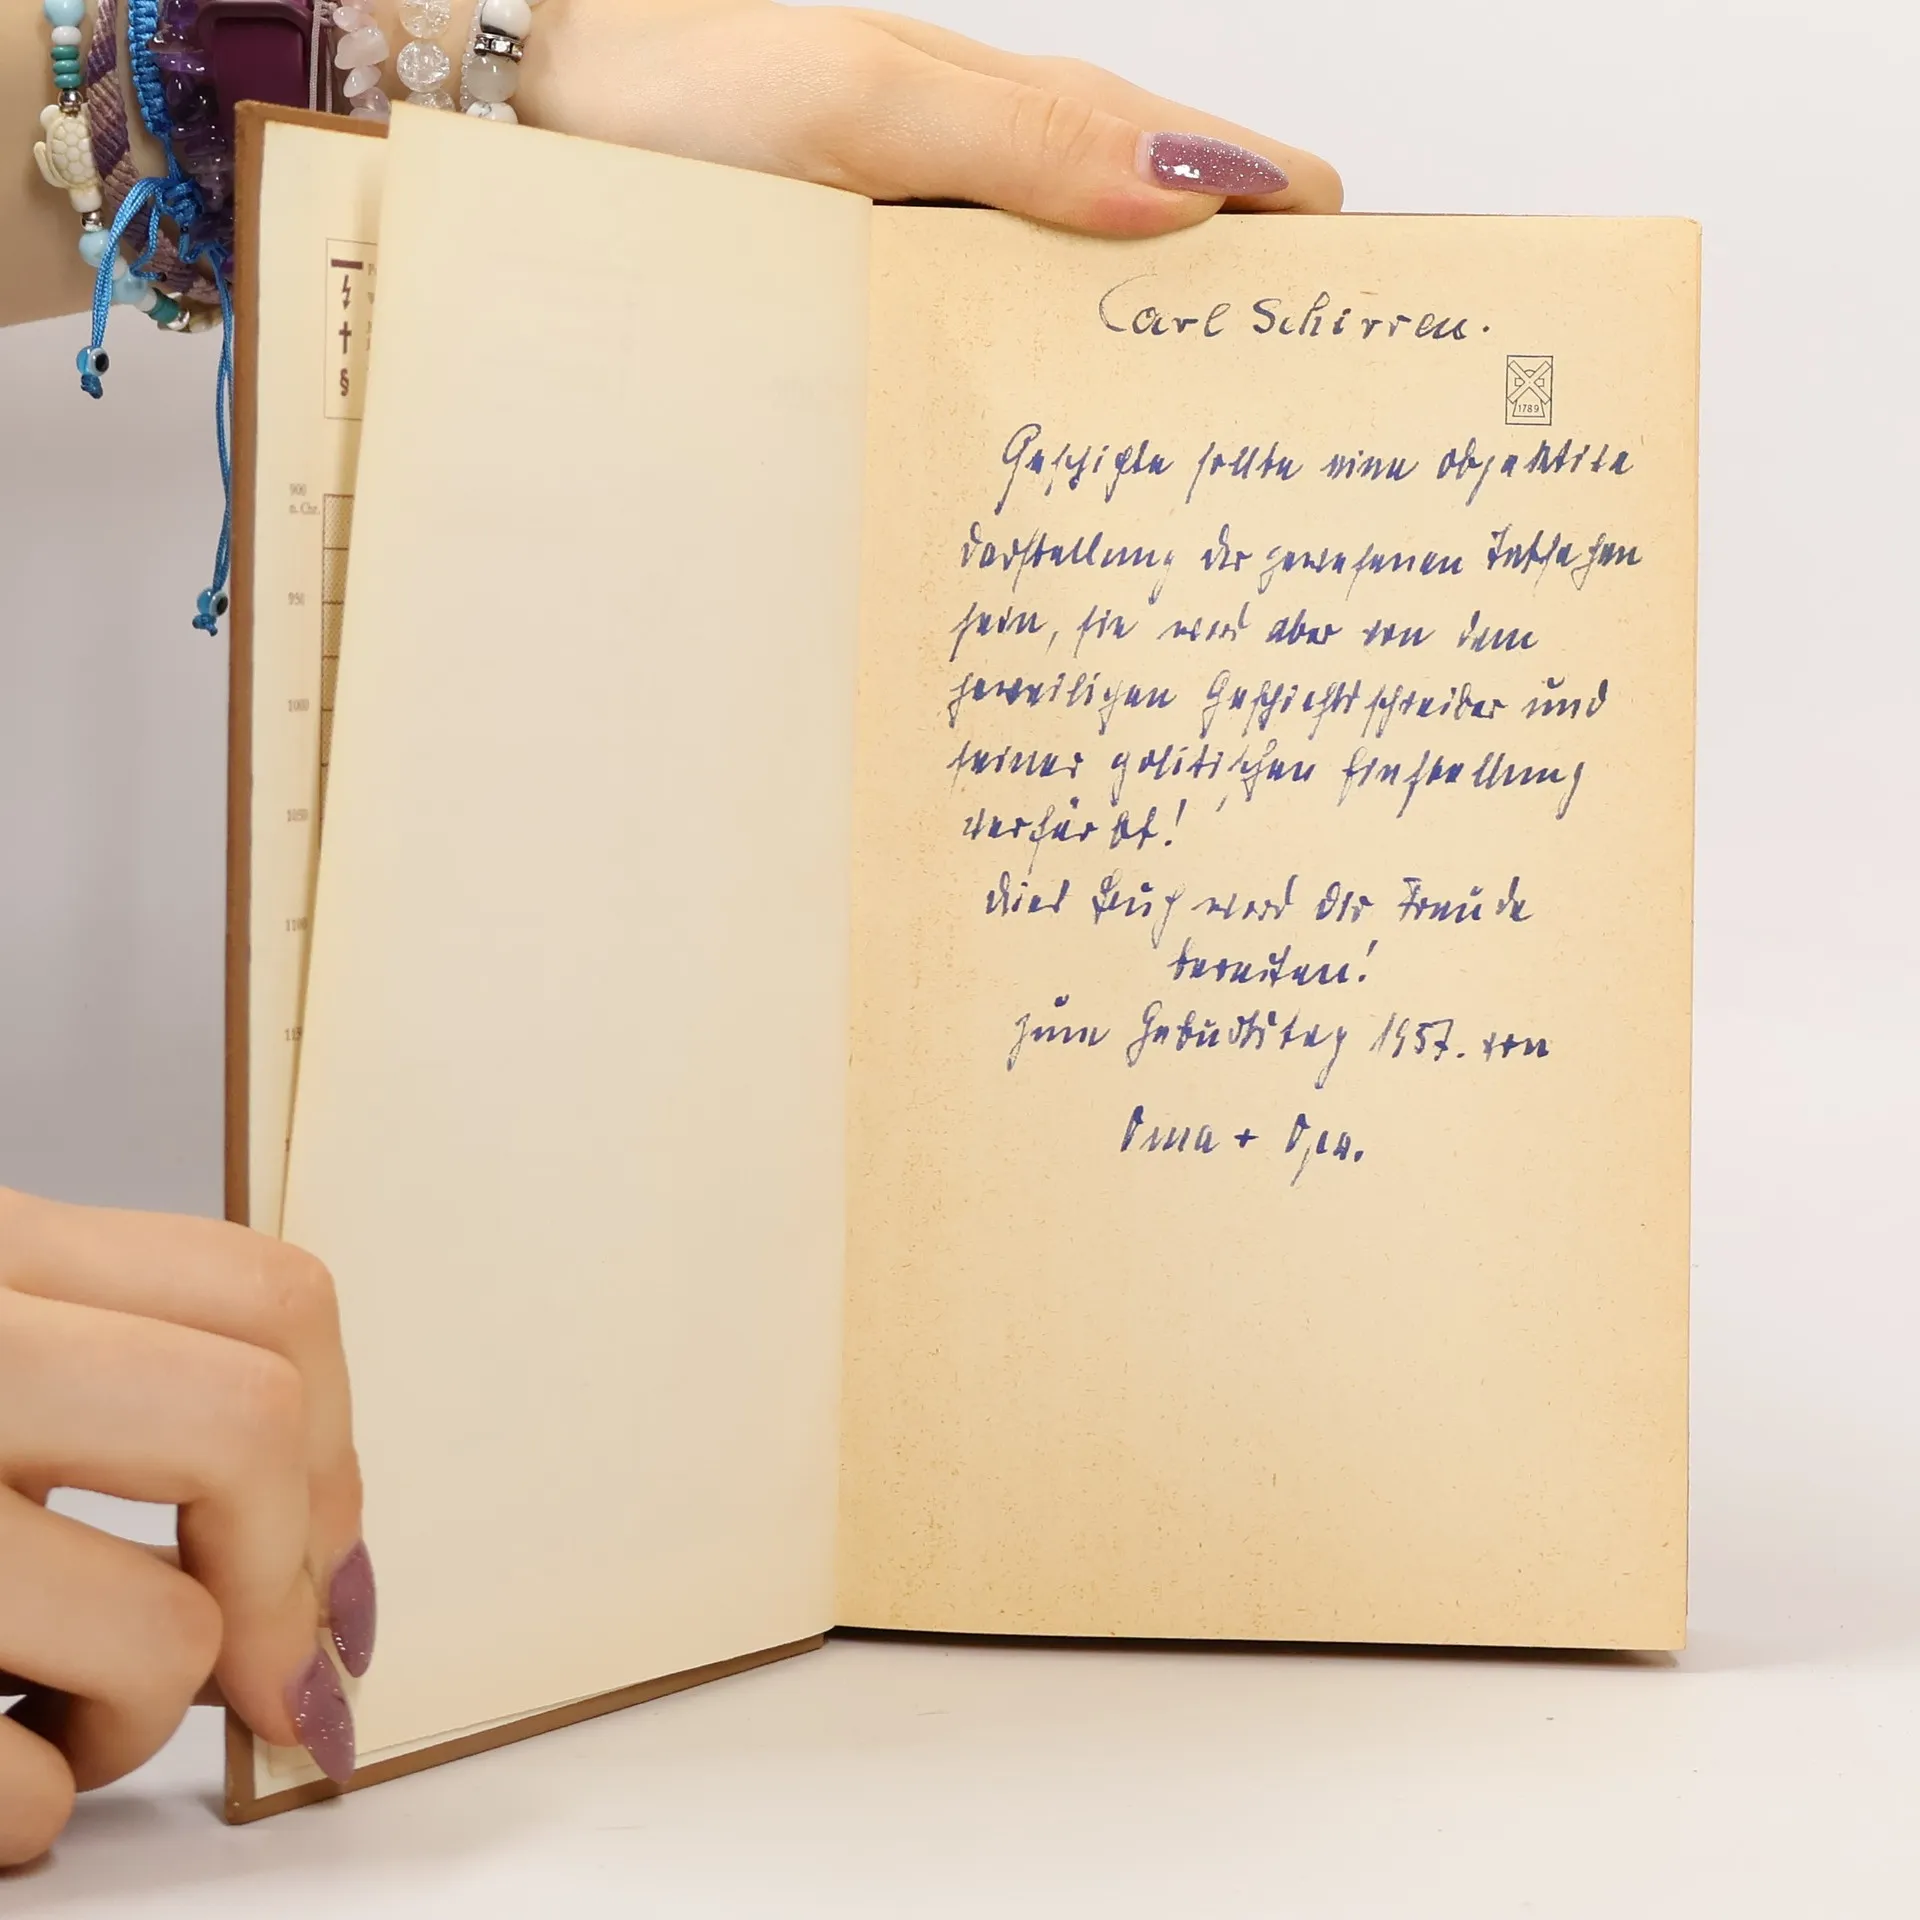 Carl Schirren.
1789
Geschichte sollte eine objektive
Darstellung der gewesenen Tatsachen
sein, sie wird aber von dem
jeweiligen Geschichtsschreiber und
seiner politischen Einstellung
verfärbt!
Dies Buch wird Dir Freude
bereiten!
Zum Geburtstag 1957. von
Oma + Opa.
§
900
n. Chr.
950
1000
1050